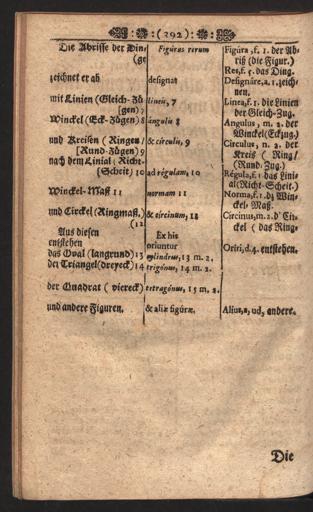 :(292):
Die Abrisse der Din-
(ge
zeichnet er ab
mit Linien (Gleich-Zü
(gen) 7
Winckel (Eck-Zügen) 8
und Kreisen (Ringen/
[Rund-Zügen) 9
nach dem Linial (Richt-
(Scheit) 10
Winckel-Maß 11
und Circkel (Ringmaß,)
(12
Aus diesen
entstehen
das Oval (langrund) 13
der Triangel (dreyeck) 14
der Quadrat (viereck)
und andere Figuren.
Figúras rerum
designat
lineis, 7
ángulis 8
& círculis, 9
ad régulam, 10
normam 11
& circinum, 12
Ex his
oriuntur
cylindrus, 13 m. 2.
trigónus, 14 m. 2.
tetragónus, 15 m. 2.
& aliæ figúræ.
Figúra, f. 1. der Ab-
riß (die Figur.)
Res, f. 5. das Ding.
Designáre, a. 1. zeich-
nen.
Linea, f. 1. die Linien
der Gleich-Zug.
Angulus, m. 2. der
Winckel (Eckzug.)
Circulus, m. 2. der
Kreis (Ring/
(Rund-Zug.)
Régula, f. 1 das Lini-
al (Richt-Scheit.)
Norma, f. 1. dz Win-
ckel-Maß.
Circinus, m. 2. d' Cir-
ckel (das Ring-
Oriri, d. 4. entstehen.
Alius, a, ud, andere.
Die